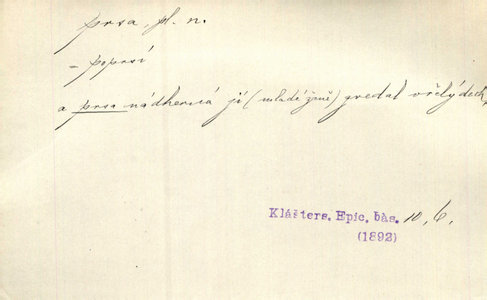 prsa, pl. n.
= poprsí
a prsa nádherná jí (mladé ženě) zvedal vřelý dech,
Klášters. Epic. bàs. 10, 6.
(1892)